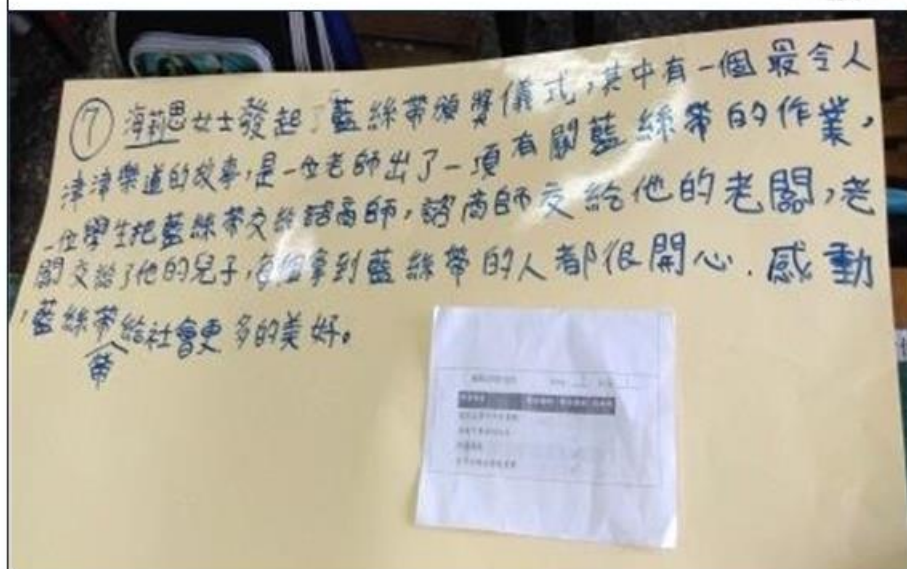 ⑦ 海莉思女士發起了藍絲帶頒獎儀式，其中有一個最令人
津津樂道的故事，是一位老師出了一項有關藍絲帶的作業，
一位學生把藍絲帶交給諮商師，諮商師交給他的老闆，老
闆交給了他的兒子，每個拿到藍絲帶的人都很開心、感動
，藍絲帶給社會更多的美好。
帶